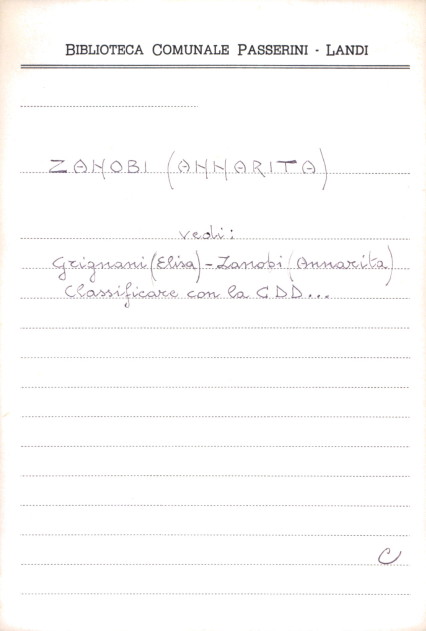 BIBLIOTECA COMUNALE PASSERINI - LANDI
ZANOBI (ANNARITA)
vedi:
Grignani (Elisa) - Zanobi (Annarita)
Classificare con la CDD...
C